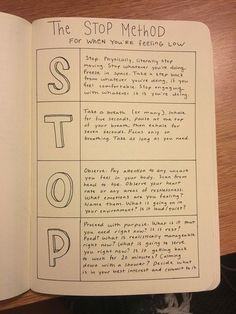 The STOP Method
FOR WHEN YOU'RE FEELING LOW
S
Stop. Physically, literally stop
moving. Stop whatever you're doing,
freeze in space. Take a step back
from whatever you're doing, if you
feel comfortable. Stop engaging
with whatever it is you're doing.
T
Take a breath (or many). Inhale
for five seconds, pause at the top
of your breath, then exhale for
seven seconds. Focus only on
breathing. Take as long as you need.
O
Observe. Pay attention to any unease
you feel in your body. Scan from
head to toe. Observe your heart
rate or any areas of
What emotions are you feeling?
Name them. What is going on in
your environment? Is it loud/quiet?
P
Proceed with purpose. What is it that
you need right now? Is it rest?
Food? What is realistically manageable
right now? What is going to serve
you right now? Is it getting back
to work for 20 minutes? Calming
down with a shower? Decide what
is in your best interest and commit to it.